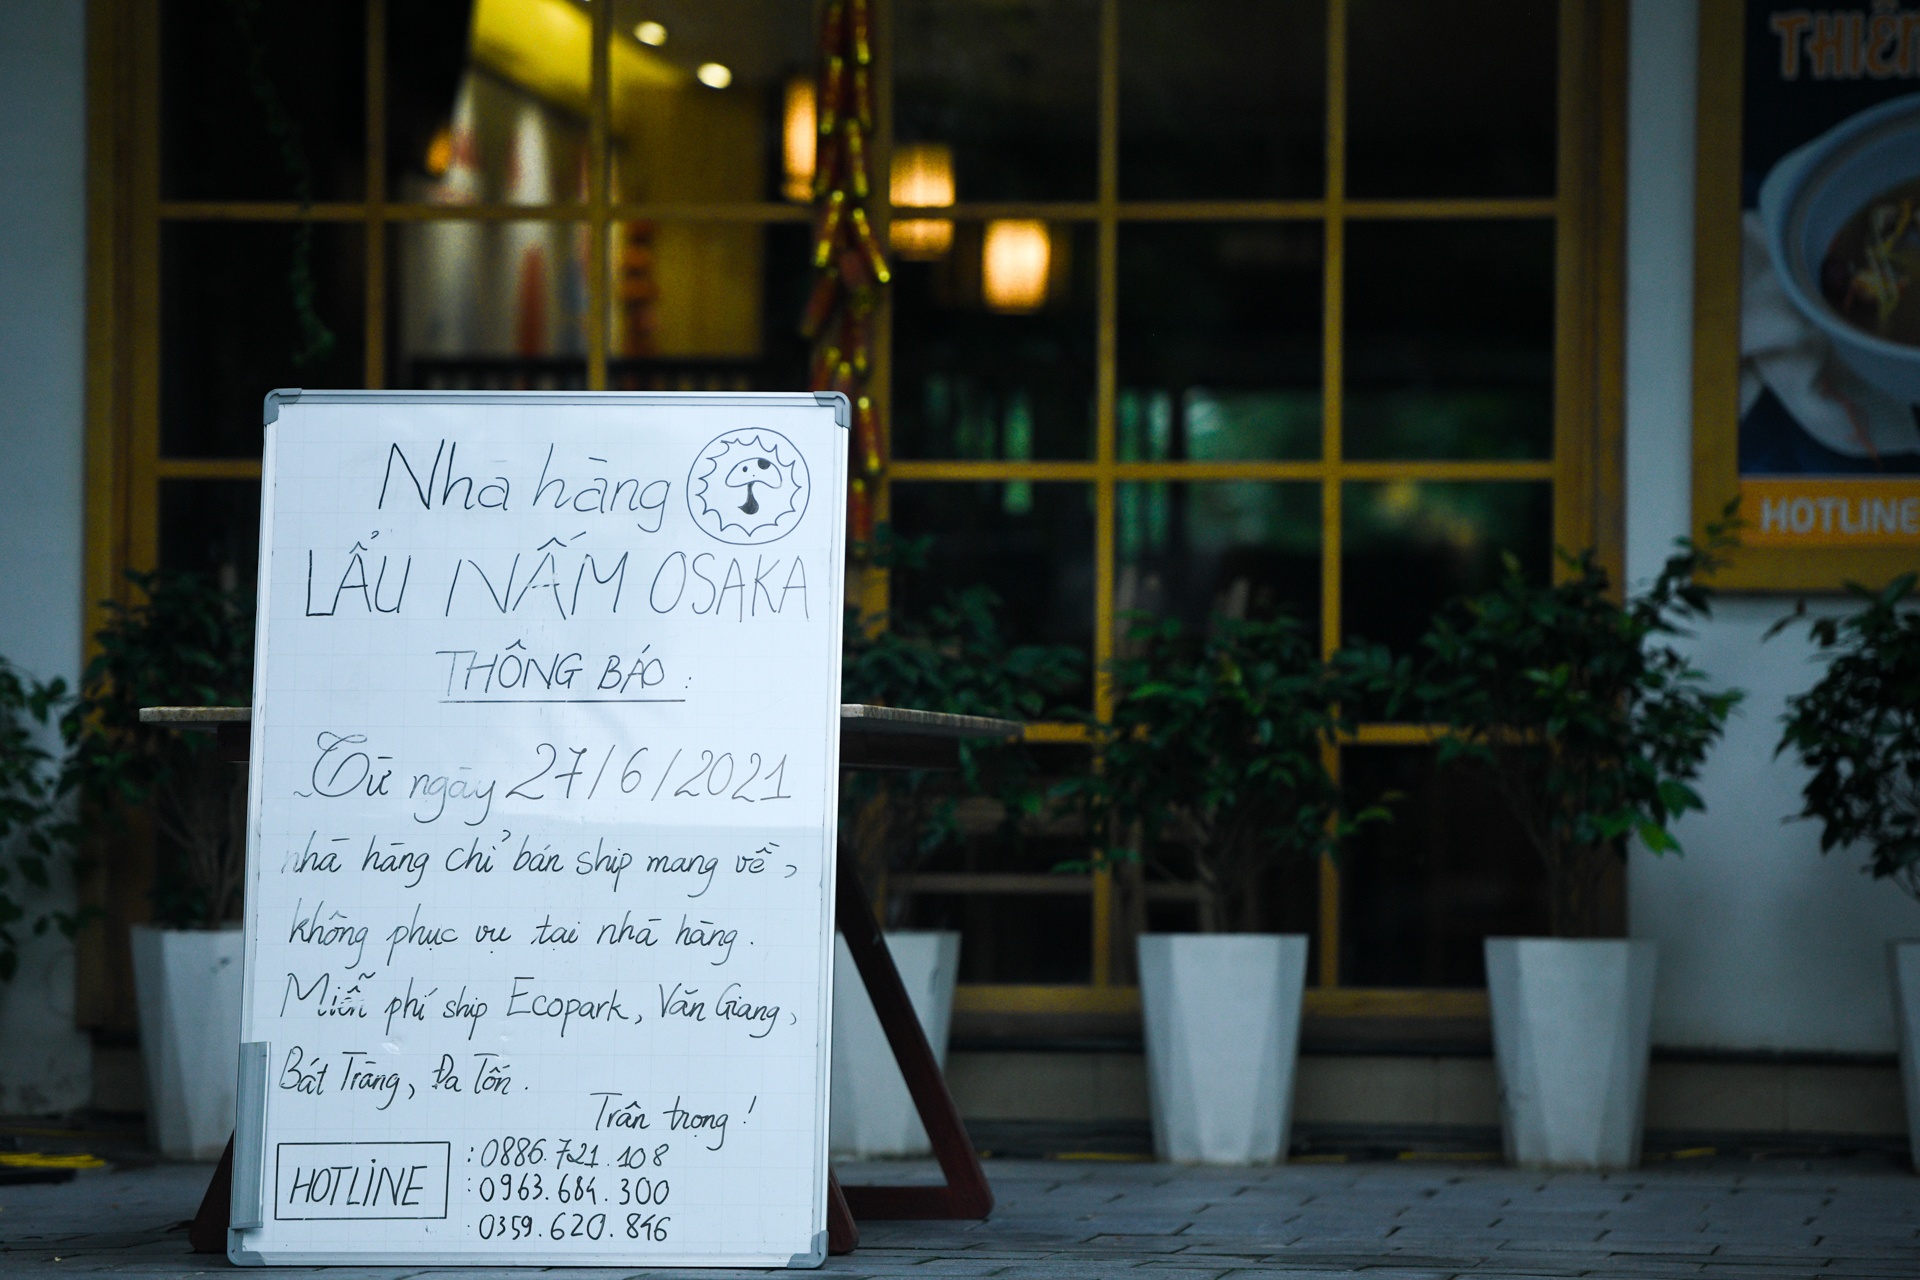 Nhà hàng
LẨU NẤM OSAKA
THÔNG BÁO :
Từ ngày 27/6/2021
nhà hàng chỉ bán ship mang về,
không phục vụ tại nhà hàng.
Miễn phí ship Ecopark, Văn Giang,
Bát Tràng, Đa Tốn.
Trân trọng !
HOTLINE : 0886.721.108
: 0963.684.300
: 0359.620.846
HOTLINE